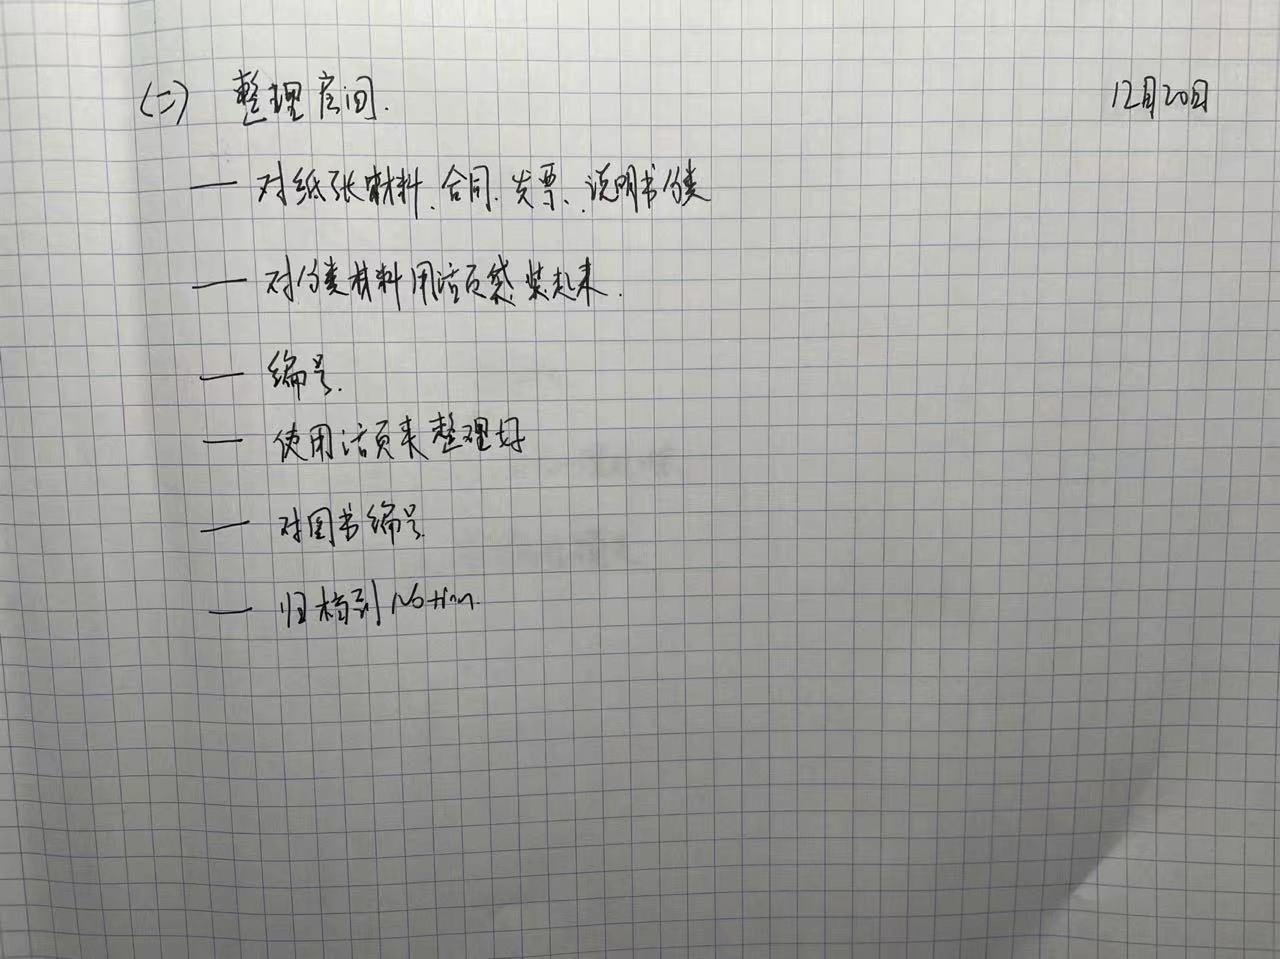 (二) 整理房间. 12月20日
— 对纸张材料、合同、发票、说明书分类
— 对分类材料用活页袋装起来.
— 编号.
— 使用活页夹整理好
— 对图书编号.
— 归档到 Notion.